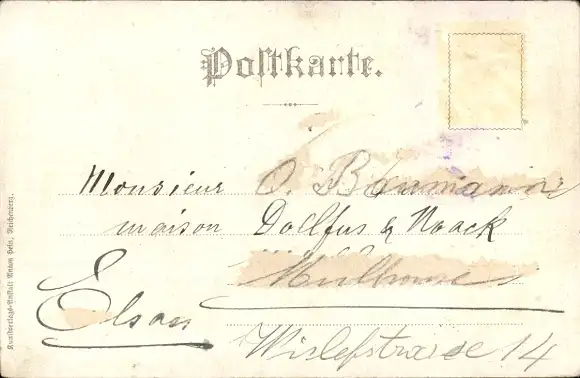 Postkarte.
Monsieur O. Baumann
maison Dollfus & Noack
Mulhouse
Elsass
14
Kunstverlags-Anstalt Anton Sels, Reichenberg.